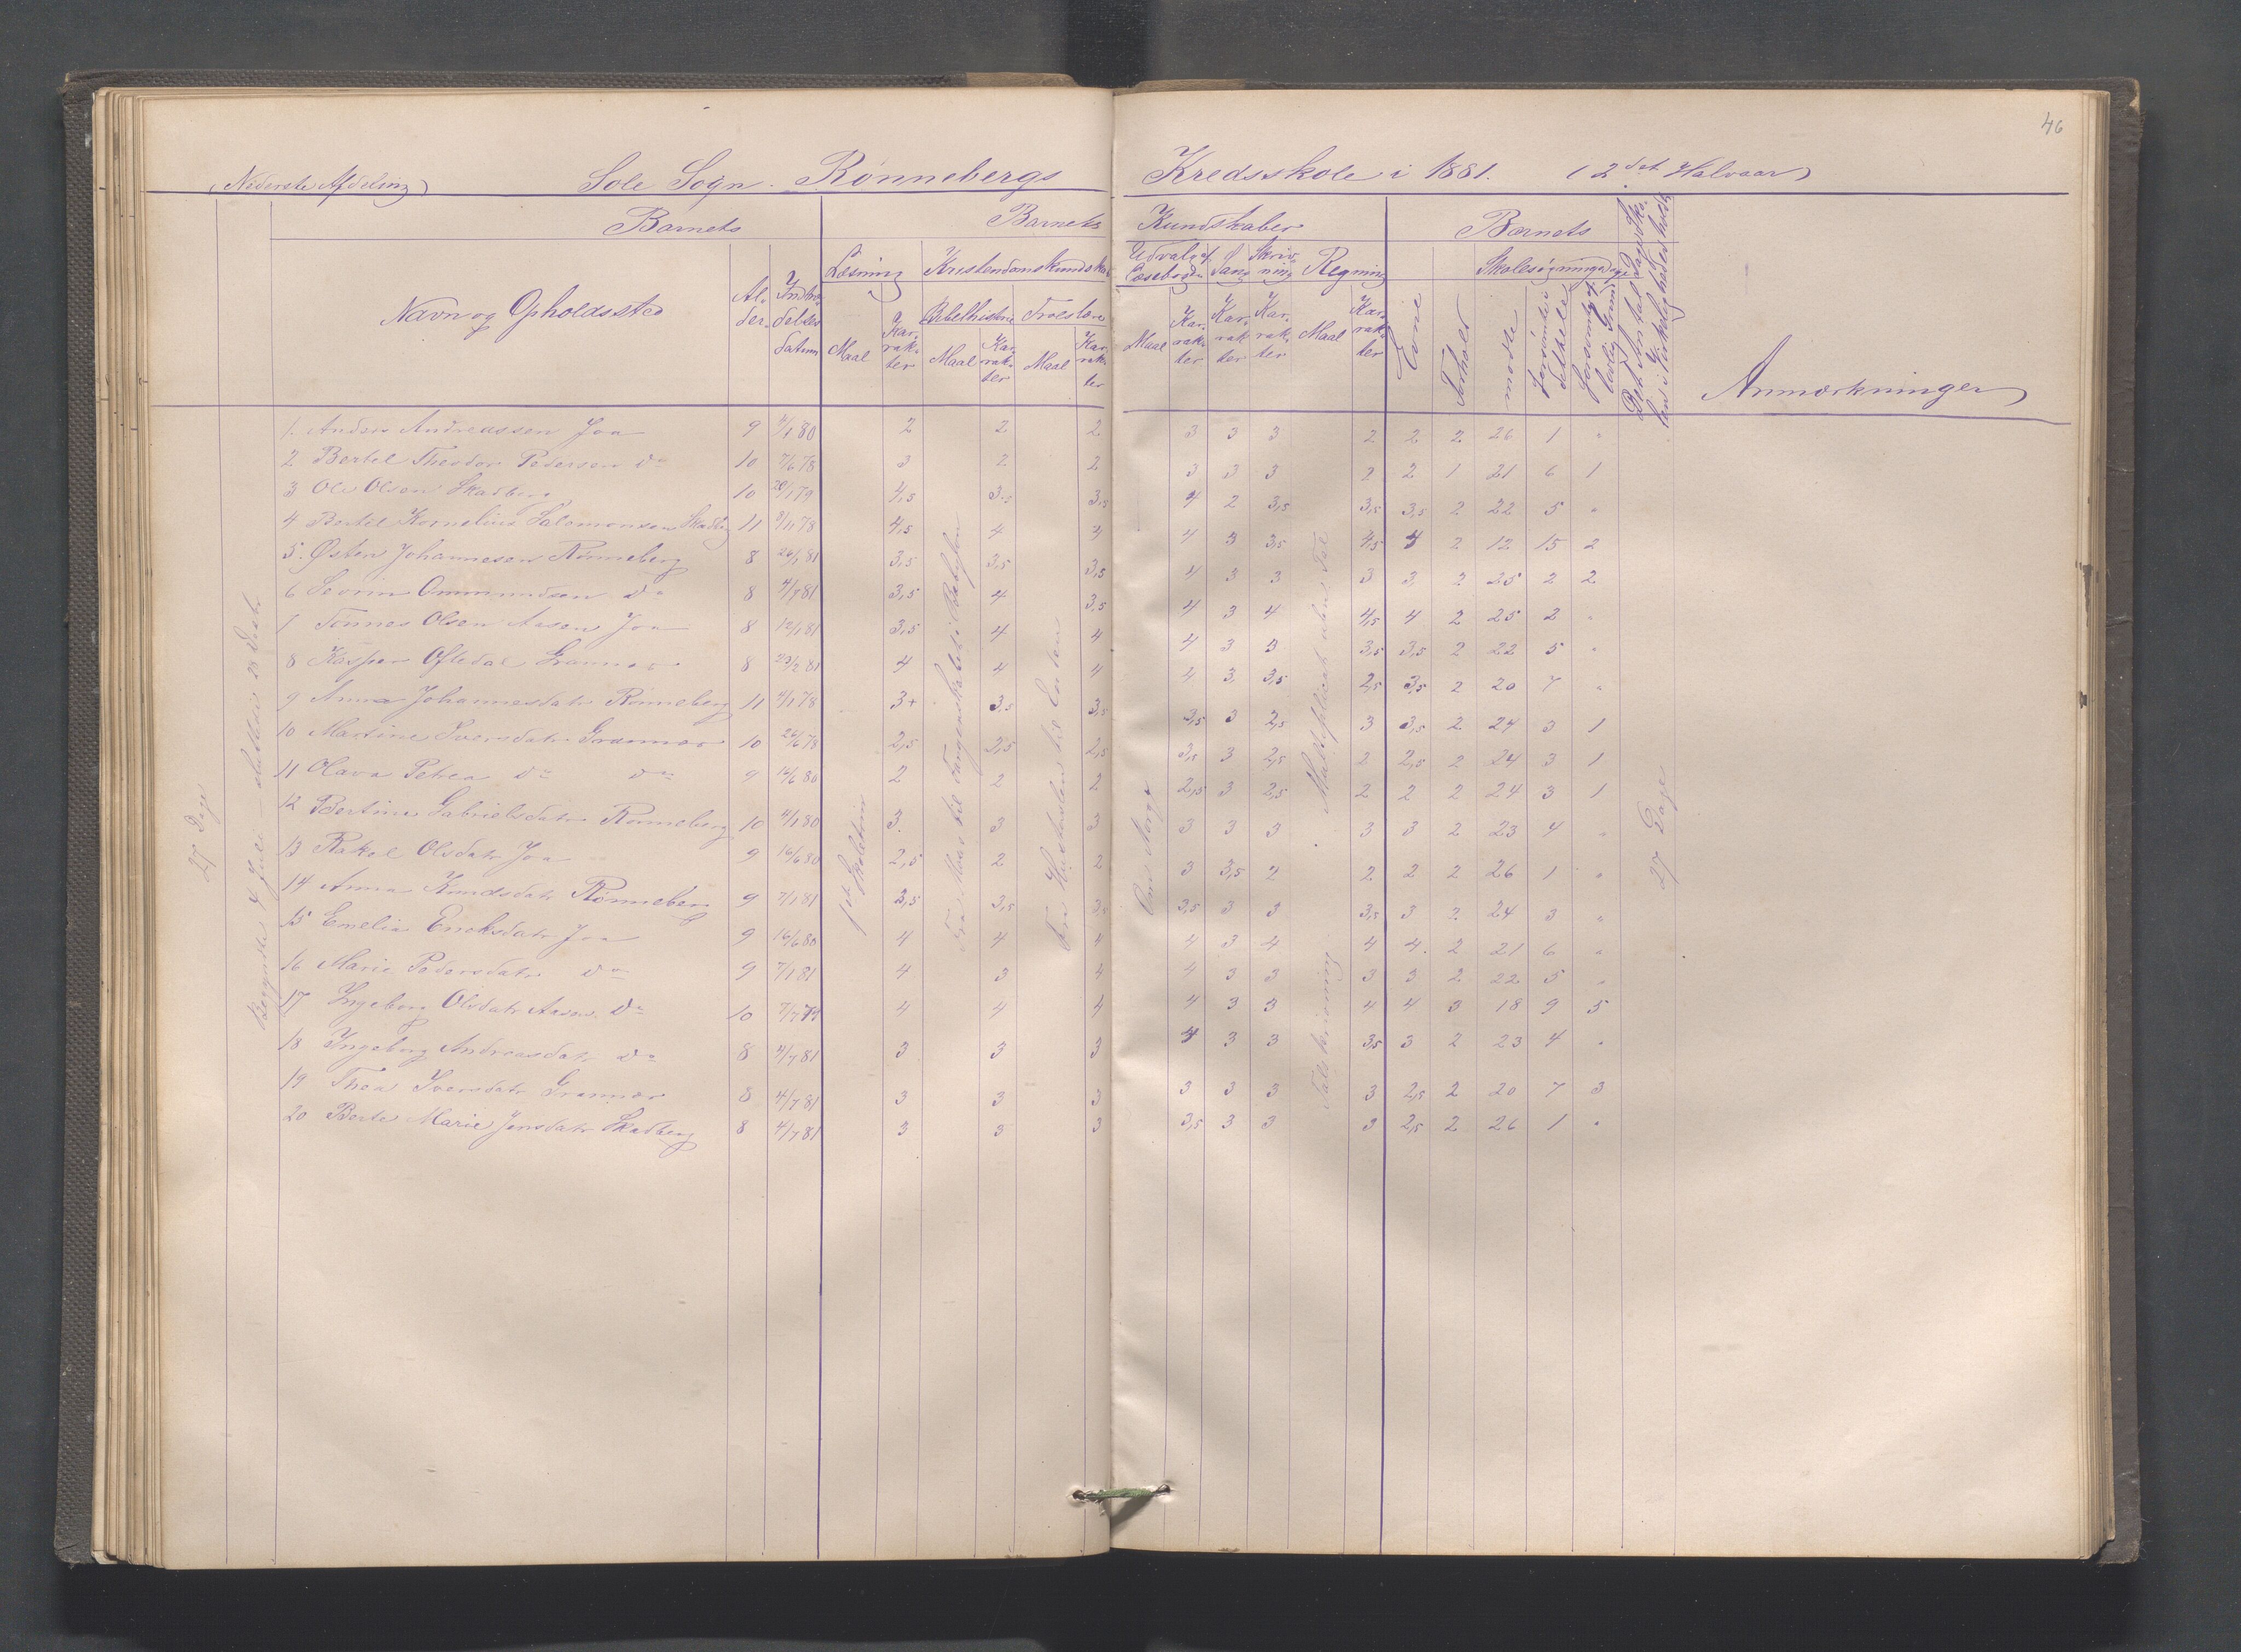 46
(Nederste Afdeling) Sole Sogn. Rønnebergs Kredsskole i 1881. (2det Halvaar)
Barnets Barnets Kundskaber Barnets
Navn og Opholdssted Alder Indtrædelsesdatum Læsning Kristendomskundskab Udvalg af Læsebogen Sang Skrivning Regning Evne Forhold Skolesøgningsdage Anmærkninger
Bibelhistorie Troeslære
Maal Karakter Maal Karakter Maal Karakter Maal Karakter Karakter Karakter Maal Karakter mødte forsømte i det hele forsømte af lovlig Grund Det Antal Dage Skolen i Virkeligheden holdt
27 Dage
1ste Skoletrin
Multiplikat uden Tal
Talskrivning
27 Dage
1. Anders Andreassen Joa 9 4/1 80 2 2 2 3 3 3 2 2 2 26 1 "
2 Bertel Theodor Pedersen do 10 7/6 78 3 2 2 3 3 3 2 2 1 21 6 1
3 Ole Olsen Skadberg 10 20/1 79 4,5 3,5 3,5 4 2 3,5 3,5 3,5 2 22 5 "
4 Bertel Kornelius Salomonsen Skadbg 11 8/1 78 4,5 4 4 4 3 3,5 4,5 4 2 12 15 2
5. Østen Johannesen Rønneberg 8 26/1 81 3,5 3,5 3,5 4 3 3 3 3 2 25 2 2
6 Sevrin Ommundsen do 8 4/7 81 3,5 4 3,5 4 3 4 4,5 4 2 25 2 "
7 Tønnes Olsen Aasen Joa 8 12/1 81 3,5 4 4 4 3 3 3,5 3,5 2 22 5 "
8 Kasper Oftedal Grannes 8 23/2 81 4 4 4 4 3 3,5 2,5 3,5 2 20 7 "
9 Anna Johannesdatr Rønneberg 11 4/1 78 3+ 3,5 3,5 3,5 3 2,5 3 3,5 2 24 3 1
10 Martine Iversdatr Grannes 10 26/6 78 2,5 2,5 2,5 3,5 3 2,5 2 2,5 2 24 3 1
11 Olava Petrea do do 9 14/6 80 2 2 2 2,5 3 2,5 2 2 2 24 3 1
12 Bertine Gabrielsdatr Rønneberg 10 4/1 80 3 3 3 3 3 3 3 3 2 23 4 "
13 Rakel Olsdatr Joa 9 16/6 80 2,5 2 2 3 3,5 2 2 2 2 26 1 "
14 Anna Knudsdatr Rønneberg 9 7/1 81 3,5 3,5 3,5 3,5 3 3 3,5 3 2 24 3 "
15 Emelie Enoksdatr Joa 9 16/6 80 4 4 4 4 3 4 4 4 2 21 6 "
16 Marie Pedersdatr do 9 7/1 81 4 3 4 4 3 3 3 3 2 22 5 "
17 Ingeborg Olsdatr Aasen do 10 7/7 79 4 4 4 4 3 3 4 4 3 18 9 5
18 Ingeborg Andreasdatr do 8 4/7 81 3 3 3 4 3 3 3,5 3 2 23 4 "
19 Thea Iversdatr Grannes 8 4/7 81 3 3 3 3 3 3 3 2,5 2 20 7 3
20 Berte Marie Jensdatr Skadberg 8 4/7 81 3 3 3 3,5 3 3 3 2,5 2 26 1 "